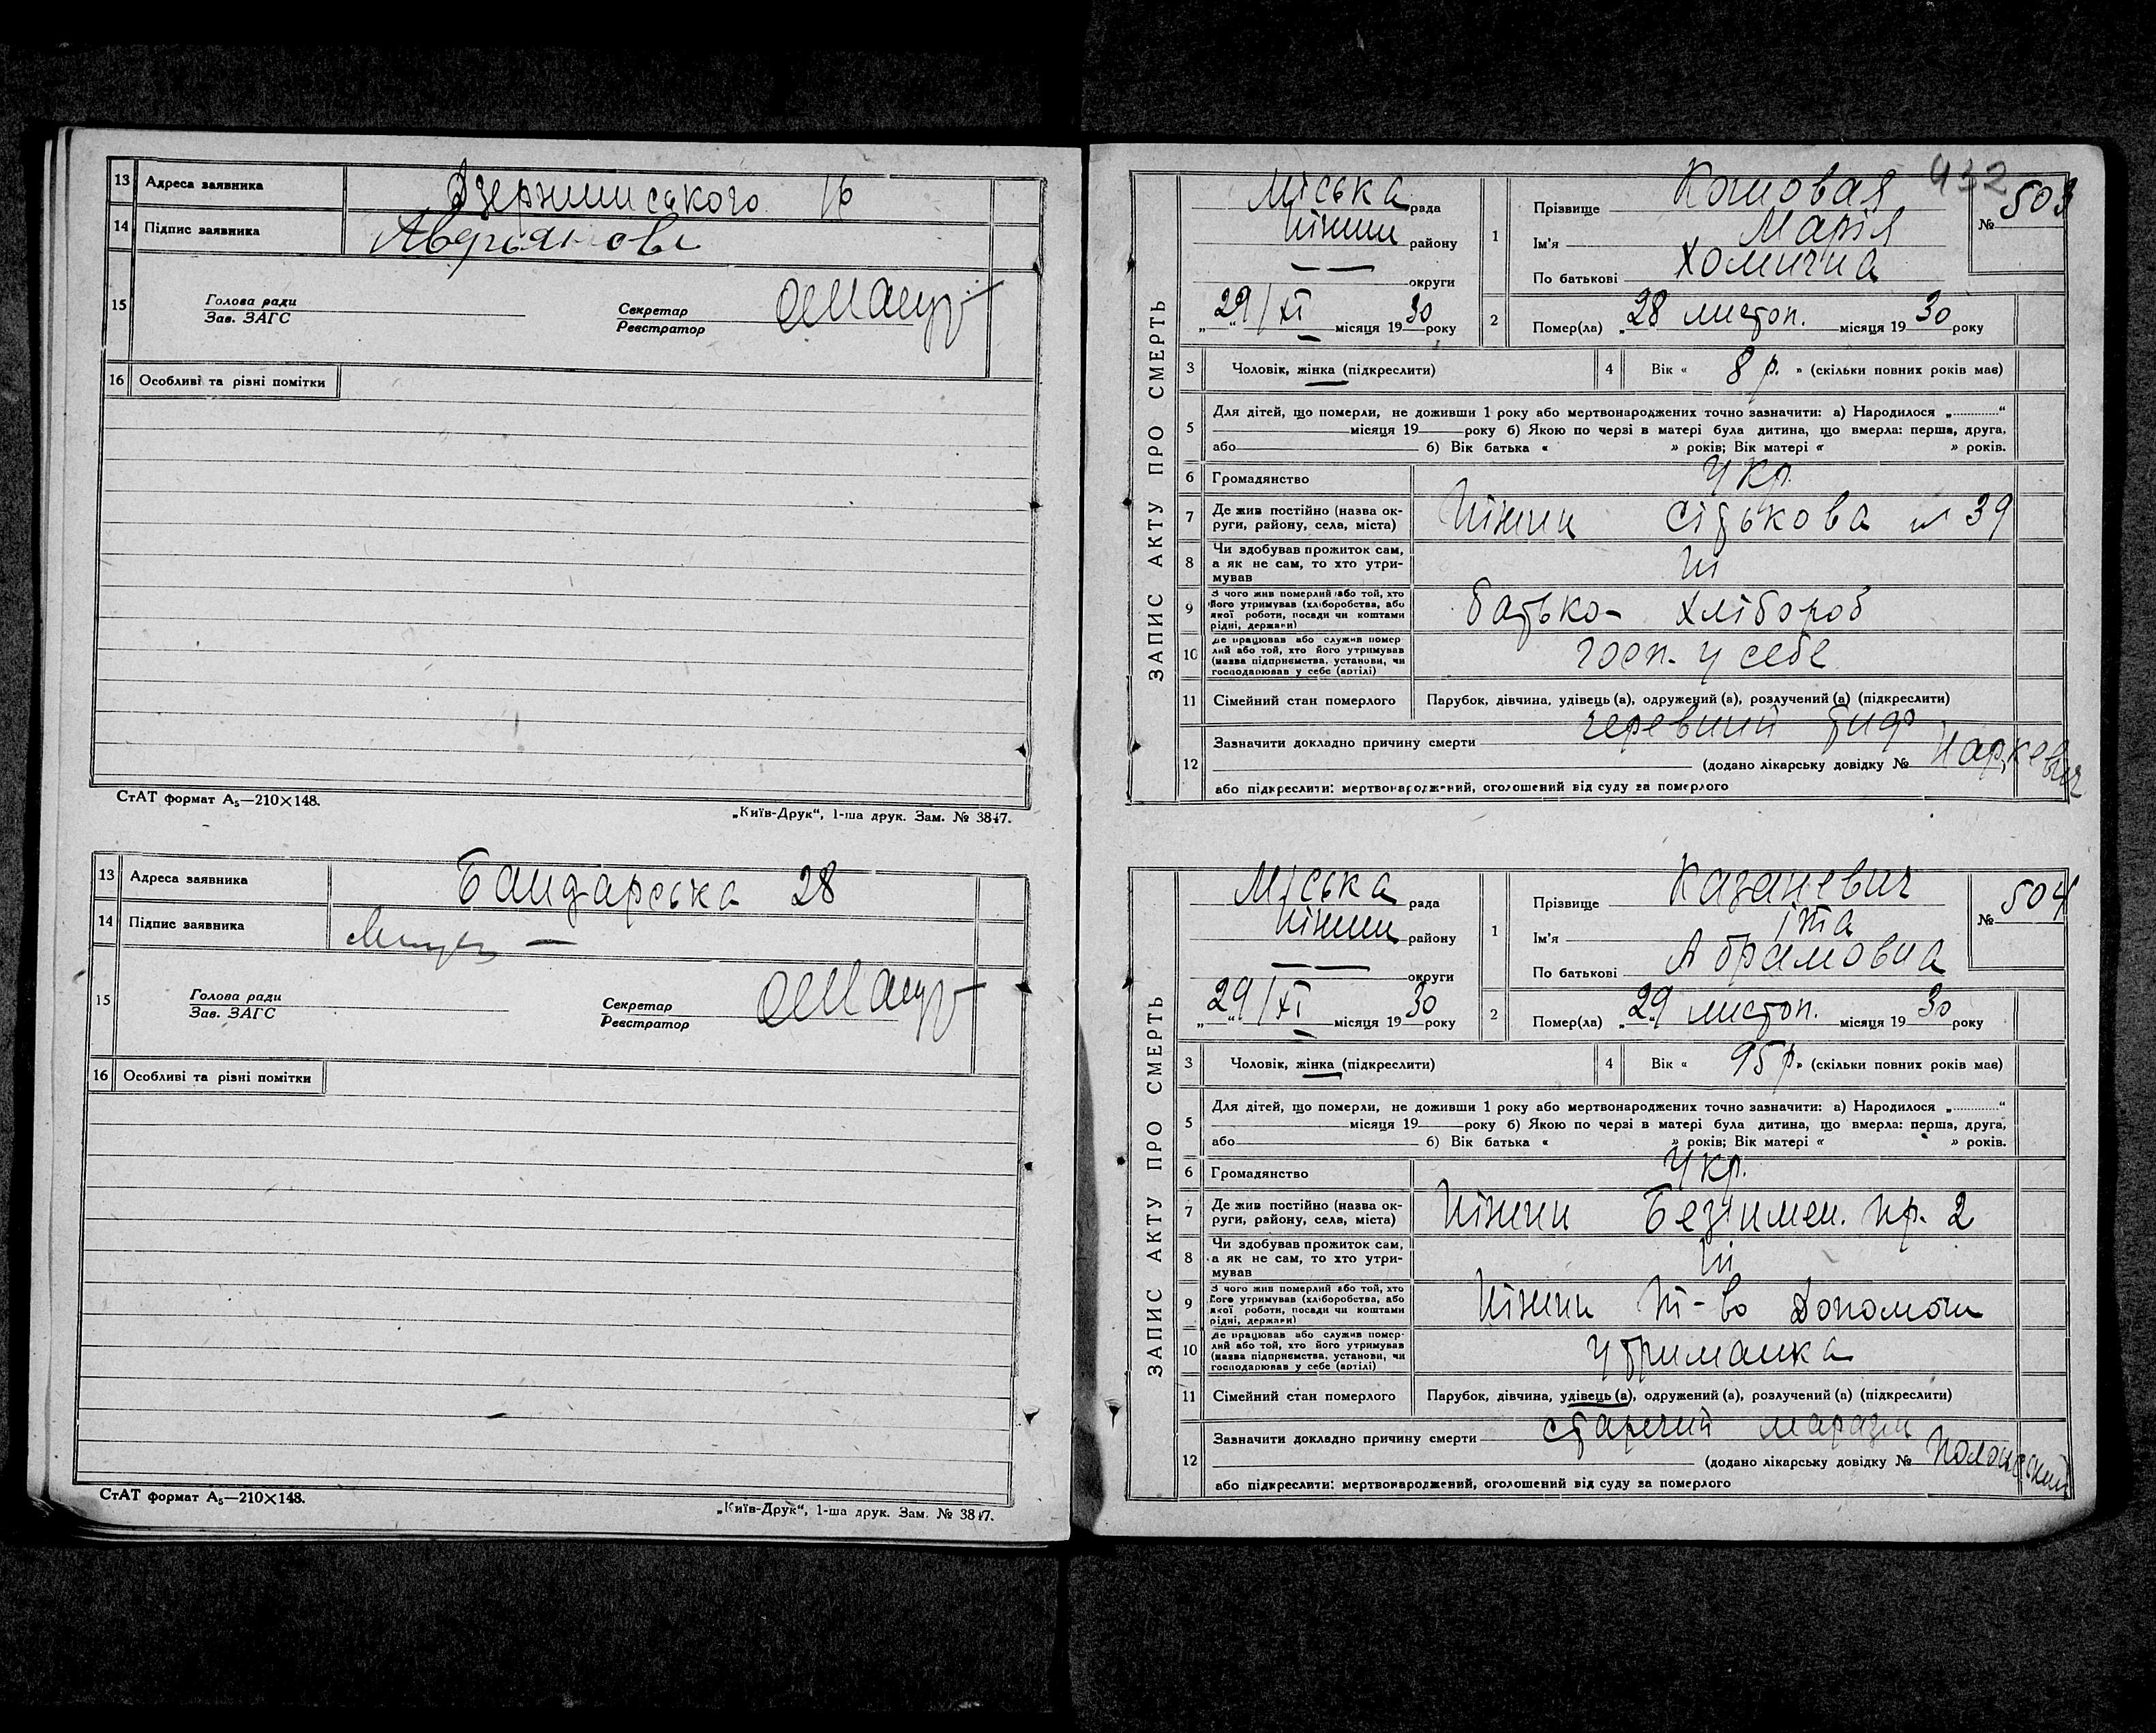 13 Адреса заявника Дзержинського 16
14 Підпис заявника
15 Голова ради
Зав. ЗАГС
Секретар
Реєстратор
16 Особливі та різні помітки
СтАТ формат А₅—210×148.
„Київ-Друк“, 1-ша друк. Зам. № 3847.
13 Адреса заявника Бандарська 28
14 Підпис заявника
15 Голова ради
Зав. ЗАГС
Секретар
Реєстратор
16 Особливі та різні помітки
СтАТ формат А₅—210×148.
„Київ-Друк“, 1-ша друк. Зам. № 3847.
432
ЗАПИС АКТУ ПРО СМЕРТЬ
Міська рада
Ніжин району
— — округи
„29“/XI місяця 1930 року
1 Прізвище
Ім'я Марія
По батькові Хомична
№ 503
2 Помер(ла) „28 листоп. місяця 1930 року
3 Чоловік, жінка (підкреслити)
4 Вік « 8 р. » (скільки повних років має)
5 Для дітей, що померли, не доживши 1 року або мертвонароджених точно зазначити: а) Народилося „............“
місяця 19 року б) Якою по черзі в матері була дитина, що вмерла: перша, друга,
або б) Вік батька « » років; Вік матері « » років.
6 Громадянство Укр.
7 Де жив постійно (назва ок-
руги, району, села, міста) Ніжин сітькова № 39
8 Чи здобував прожиток сам,
а як не сам, то хто утри-
мував Ні
9 З чого жив померлий або той, хто
його утримував (хліборобства, або
якої роботи, посади чи коштами
рідні, держави) батько- хлібороб
10 Де працював або служив помер
лий або той, хто його утримував
(назва підприємства, установи, чи
господарював у себе (артілі) госп. у себе
11 Сімейний стан померлого Парубок, дівчина, удівець (а), одружений (а), розлучений (а) (підкреслити)
12 Зазначити докладно причину смерти черевний тиф
(додано лікарську довідку №
або підкреслити: мертвонароджений, оголошений від суду за померлого
ЗАПИС АКТУ ПРО СМЕРТЬ
Міська рада
Ніжин району
— — округи
„29“/XI місяця 1930 року
1 Прізвище Казаневич
Ім'я Іта
По батькові Абрамовна
№ 504
2 Помер(ла) „29 листоп. місяця 1930 року
3 Чоловік, жінка (підкреслити)
4 Вік « 95 р. » (скільки повних років має)
5 Для дітей, що померли, не доживши 1 року або мертвонароджених точно зазначити: а) Народилося „............“
місяця 19 року б) Якою по черзі в матері була дитина, що вмерла: перша, друга,
або б) Вік батька « » років; Вік матері « » років.
6 Громадянство Укр.
7 Де жив постійно (назва ок-
руги, району, села, міста) Ніжин Безімен. пр. 2
8 Чи здобував прожиток сам,
а як не сам, то хто утри-
мував Ні
9 З чого жив померлий або той, хто
його утримував (хліборобства, або
якої роботи, посади чи коштами
рідні, держави) Ніжин т-во Допомоги
10 Де працював або служив помер-
лий або той, хто його утримував
(назва підприємства, установи, чи
господарював у себе (артілі) утриманка
11 Сімейний стан померлого Парубок, дівчина, удівець (а), одружений (а), розлучений (а) (підкреслити)
12 Зазначити докладно причину смерти старечий маразм
(додано лікарську довідку №
або підкреслити: мертвонароджений, оголошений від суду за померлого